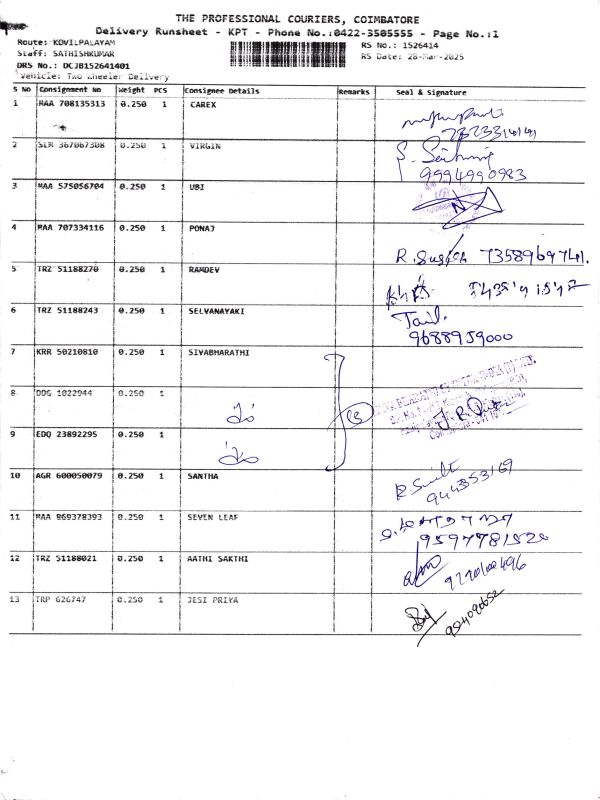 THE PROFESSIONAL COURIERS, COIMBATORE
Delivery Runsheet - KPT - Phone No.:0422-3505555 - Page No.:1
Route: KOVILPALAYAM RS No.: 1526414
Staff: SATHISHKUMAR RS Date: 28-Mar-2025
DRS No.: DCJB152641401
Vehicle: Two Wheeler Delivery
S No Consignment No Weight PCS Consignee Details Remarks Seal & Signature
1 MAA 708135313 0.250 1 CAREX
2 SLM 367067308 0.250 1 VIRGIN
9994990983
3 MAA 575056704 0.250 1 UBI
4 MAA 707334116 0.250 1 PONAJ
7358969741.
5 TRZ 51188270 0.250 1 RAMDEV
6 TRZ 51188243 0.250 1 SELVANAYAKI
9688959000
7 KRR 50210810 0.250 1 SIVABHARATHI
8 DDG 1022944 0.250 1
9 EDQ 23892295 0.250 1
10 AGR 600050079 0.250 1 SANTHA
11 MAA 869378393 0.250 1 SEVEN LEAF
12 TRZ 51188021 0.250 1 AATHI SAKTHI
13 TRP 626747 0.250 1 JESI PRIYA